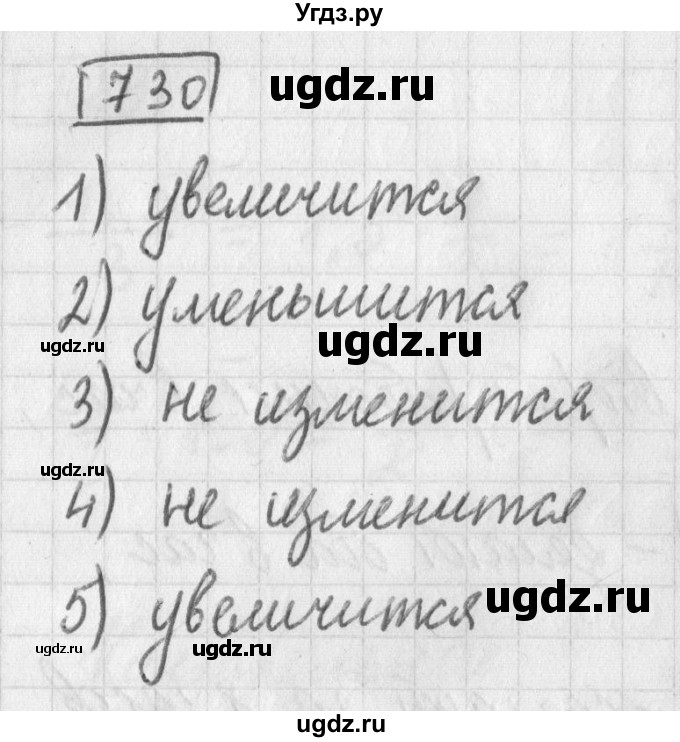 Угдз.ру
730
ugdz.ru
1) увеличится
2) уменьшится
ugdz.ru
ugdz.ru
3) не изменится
ugdz.ru
4) не изменится
ugdz.ru
5) увеличится
ugdz.ru
ugdz.ru
ugdz.ru